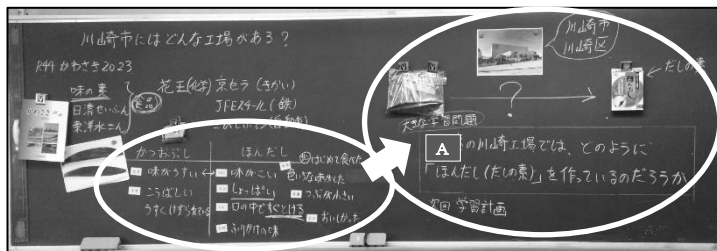 川崎市にはどんな工場がある?
P.44 かわさき2023
味の素
日清せいふん
東洋水さん
食品
花王(化学) 京セラ(きかい)
JFEスチール(鉄)
かつおぶし
ほんだし
味がうすい
こうばしい
うすくけずられている
味がこい
しょっぱい
口の中ですぐとける
ふりかけの味
はじめて食べた
つぶが小さい
おいしかった
川崎市
川崎区
だしの素
?
大きな学習問題
A の川崎工場では、どのように
「ほんだし(だしの素)」を作っているのだろうか
次回 学習計画